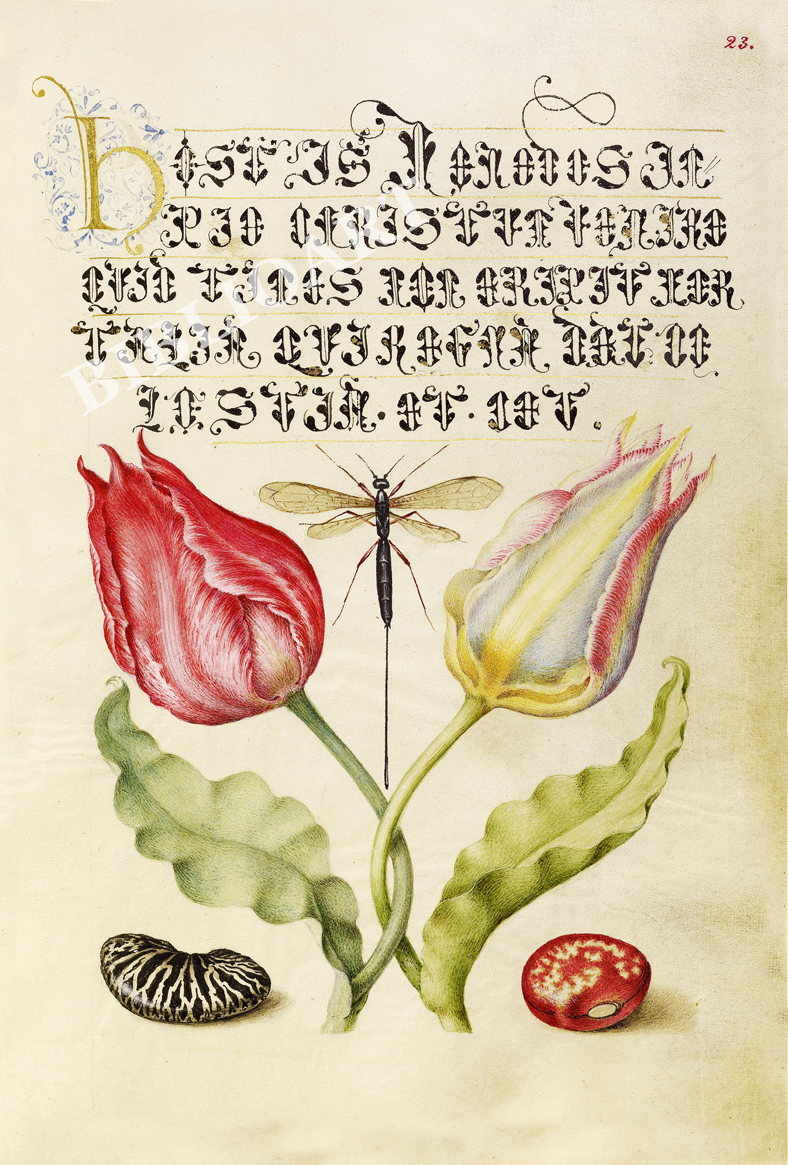 23.
HOSTIS HERODES IM
PIE CHRISTVM VENIRE
QVID TIMES NON ERIPIT MOR
TALIA QVI REGNA DAT COE
LESTIA. ET. CET.
BIBLIOART